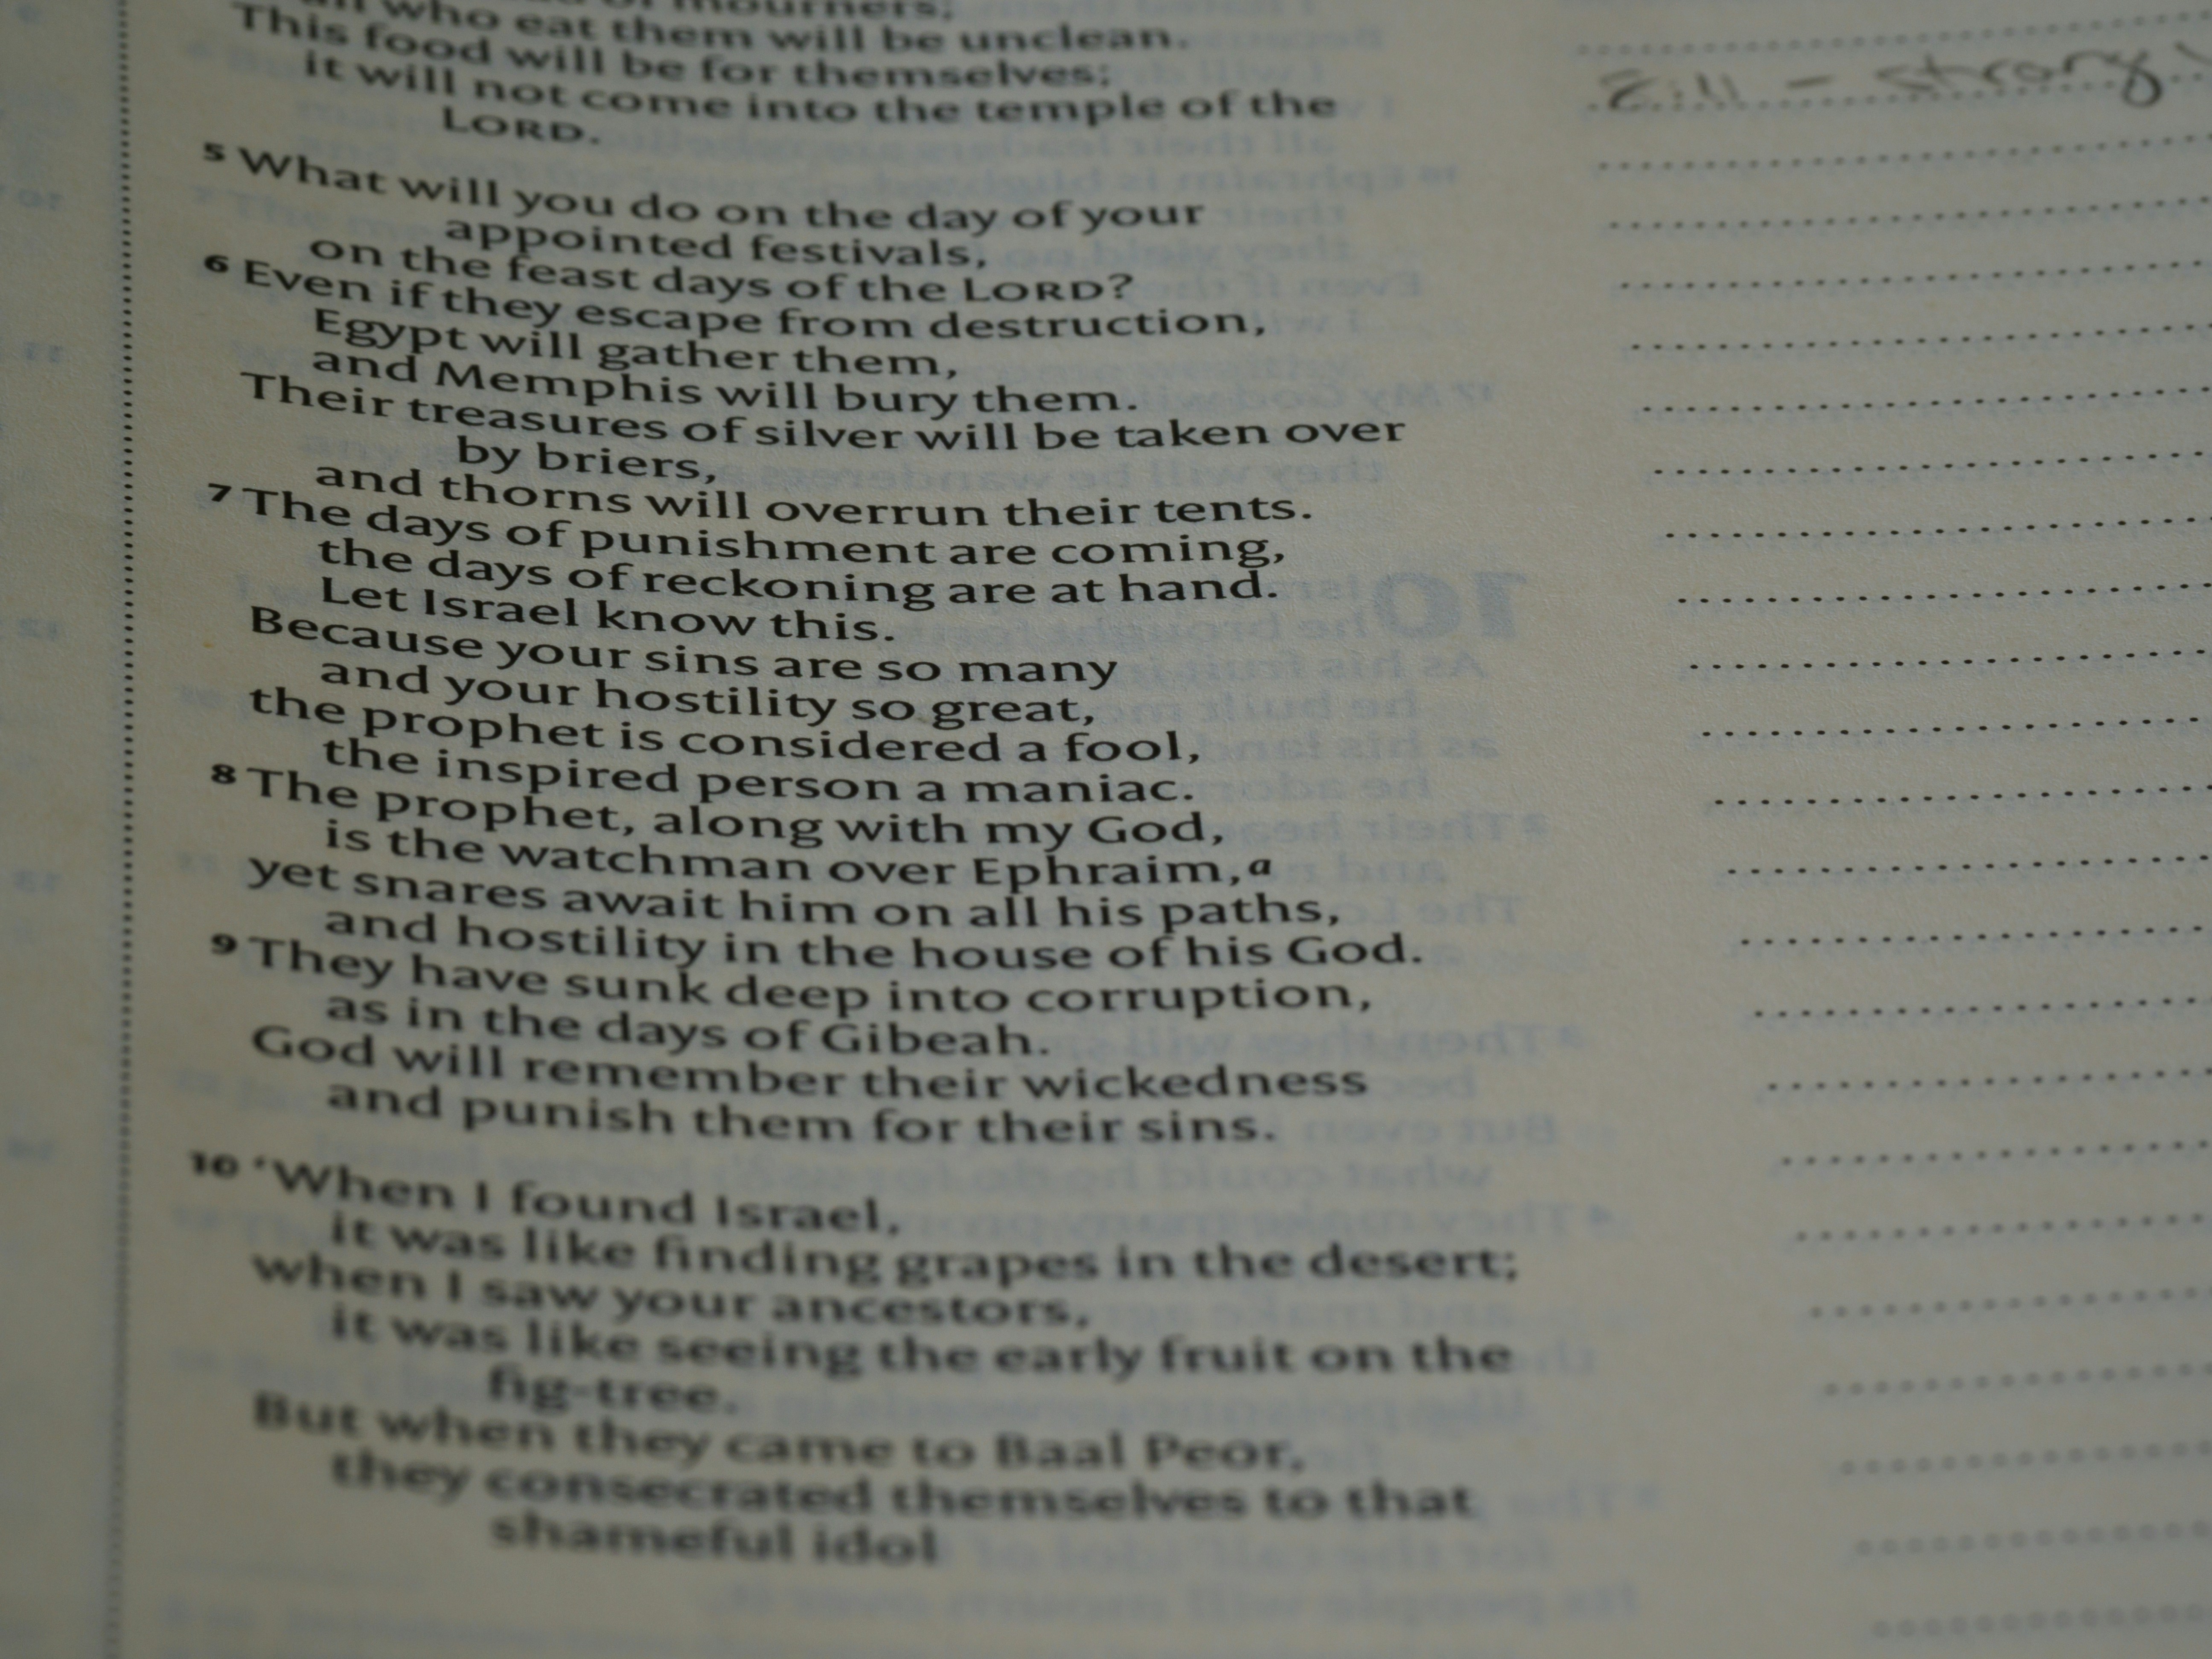 who eat them will be unclean.
This food will be for themselves;
it will not come into the temple of the
LORD.
5 What will you do on the day of your
appointed festivals,
on the feast days of the LORD?
6 Even if they escape from destruction,
Egypt will gather them,
and Memphis will bury them.
Their treasures of silver will be taken over
by briers,
and thorns will overrun their tents.
7 The days of punishment are coming,
the days of reckoning are at hand.
Let Israel know this.
Because your sins are so many
and your hostility so great,
the prophet is considered a fool,
the inspired person a maniac.
8 The prophet, along with my God,
is the watchman over Ephraim,a
yet snares await him on all his paths,
and hostility in the house of his God.
9 They have sunk deep into corruption,
as in the days of Gibeah.
God will remember their wickedness
and punish them for their sins.
10 ‘When I found Israel,
it was like finding grapes in the desert;
when I saw your ancestors,
it was like seeing the early fruit on the
fig-tree.
But when they came to Baal Peor,
they consecrated themselves to that
shameful idol
- strong